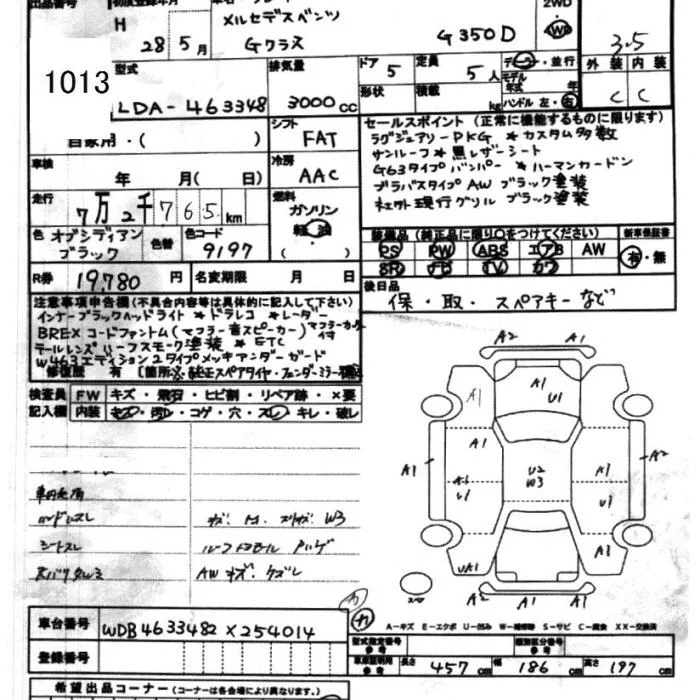 出品番号 初度登録年月
2WD
H 28年 5月
メルセデスベンツ
Gクラス
G350D
4WD
3.5
1013
型式 排気量 ドア 定員 ディーラー・並行 外装 内装
LDA-463348 3000cc 5 5人 モデル年式 年
形状 積載 kg ハンドル 左・右 C C
自家用・( )
シフト
FAT
セールスポイント (正常に機能するものに限ります)
ラグジュアリーPKG * カスタム多数
サンルーフ * 黒レザーシート
G63タイプバンパー * ハーマンカードン
ブラバスタイプAW ブラック塗装
社外現行グリル ブラック塗装
車検 年 月( 日)
冷房
AAC
走行 7万2千765km
燃料
ガソリン
軽油
( )
色 オブシディアンブラック 色替 色コード 9197
装備品 (純正品に限り○をつけてください) 新車保証書
PS PW ABS エアB AW 有・無
SR ナビ TV カワ
R券 19,780円 名変期限 月 日
後日品
保・取・スペアキーなど
注意事項申告欄 (不具合内容等は具体的に記入して下さい)
インナーブラックヘッドライト * ドラレコ * レーダー
BREXコードファントム(マフラー音スピーカー) マフラーカッター付
テールレンズハーフスモーク塗装 * ETC
W463エディション2タイプメッキアンダーガード
修復歴 有 [箇所 ※純正スペアタイヤ・フェンダーミラー
検査員記入欄 FW キズ・飛石・ヒビ割・リペア跡・×要
内装 キズ・汚レ・コゲ・穴・スレ・キレ・破レ
ハンドルスレ
シートスレ
キズ W3
ルーフ ハゲ
AW キズ・ケズレ
A2
A1
A1
U1
A1
A1
A1
A2
U2
W3
A1
U1
A1
U1
UA1
A2
A2
A1
スペア
A-キズ E-エクボ U-凹み W-補修跡 S-サビ C-腐食 XX-交換済
車台番号 WDB4633482X254014
登録番号
型式指定番号 類別区分番号
車庫証明用 長さ 457cm 幅 186cm 高さ 197cm
希望出品コーナー (コーナーは各会場により異なります。)